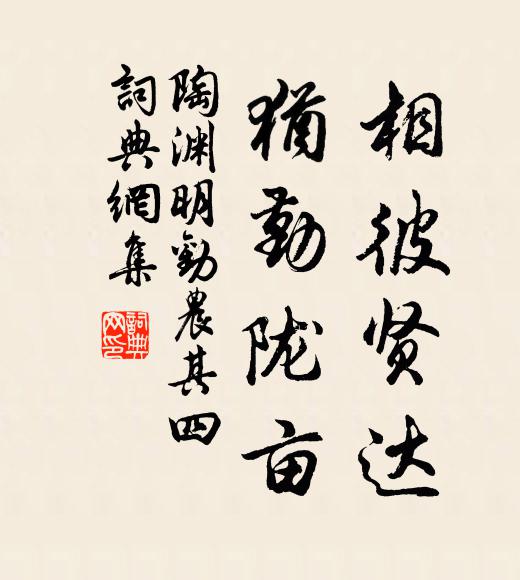 相彼贤达
犹勤陇亩
陶渊明勸農其四
詞典網集
詞典网印